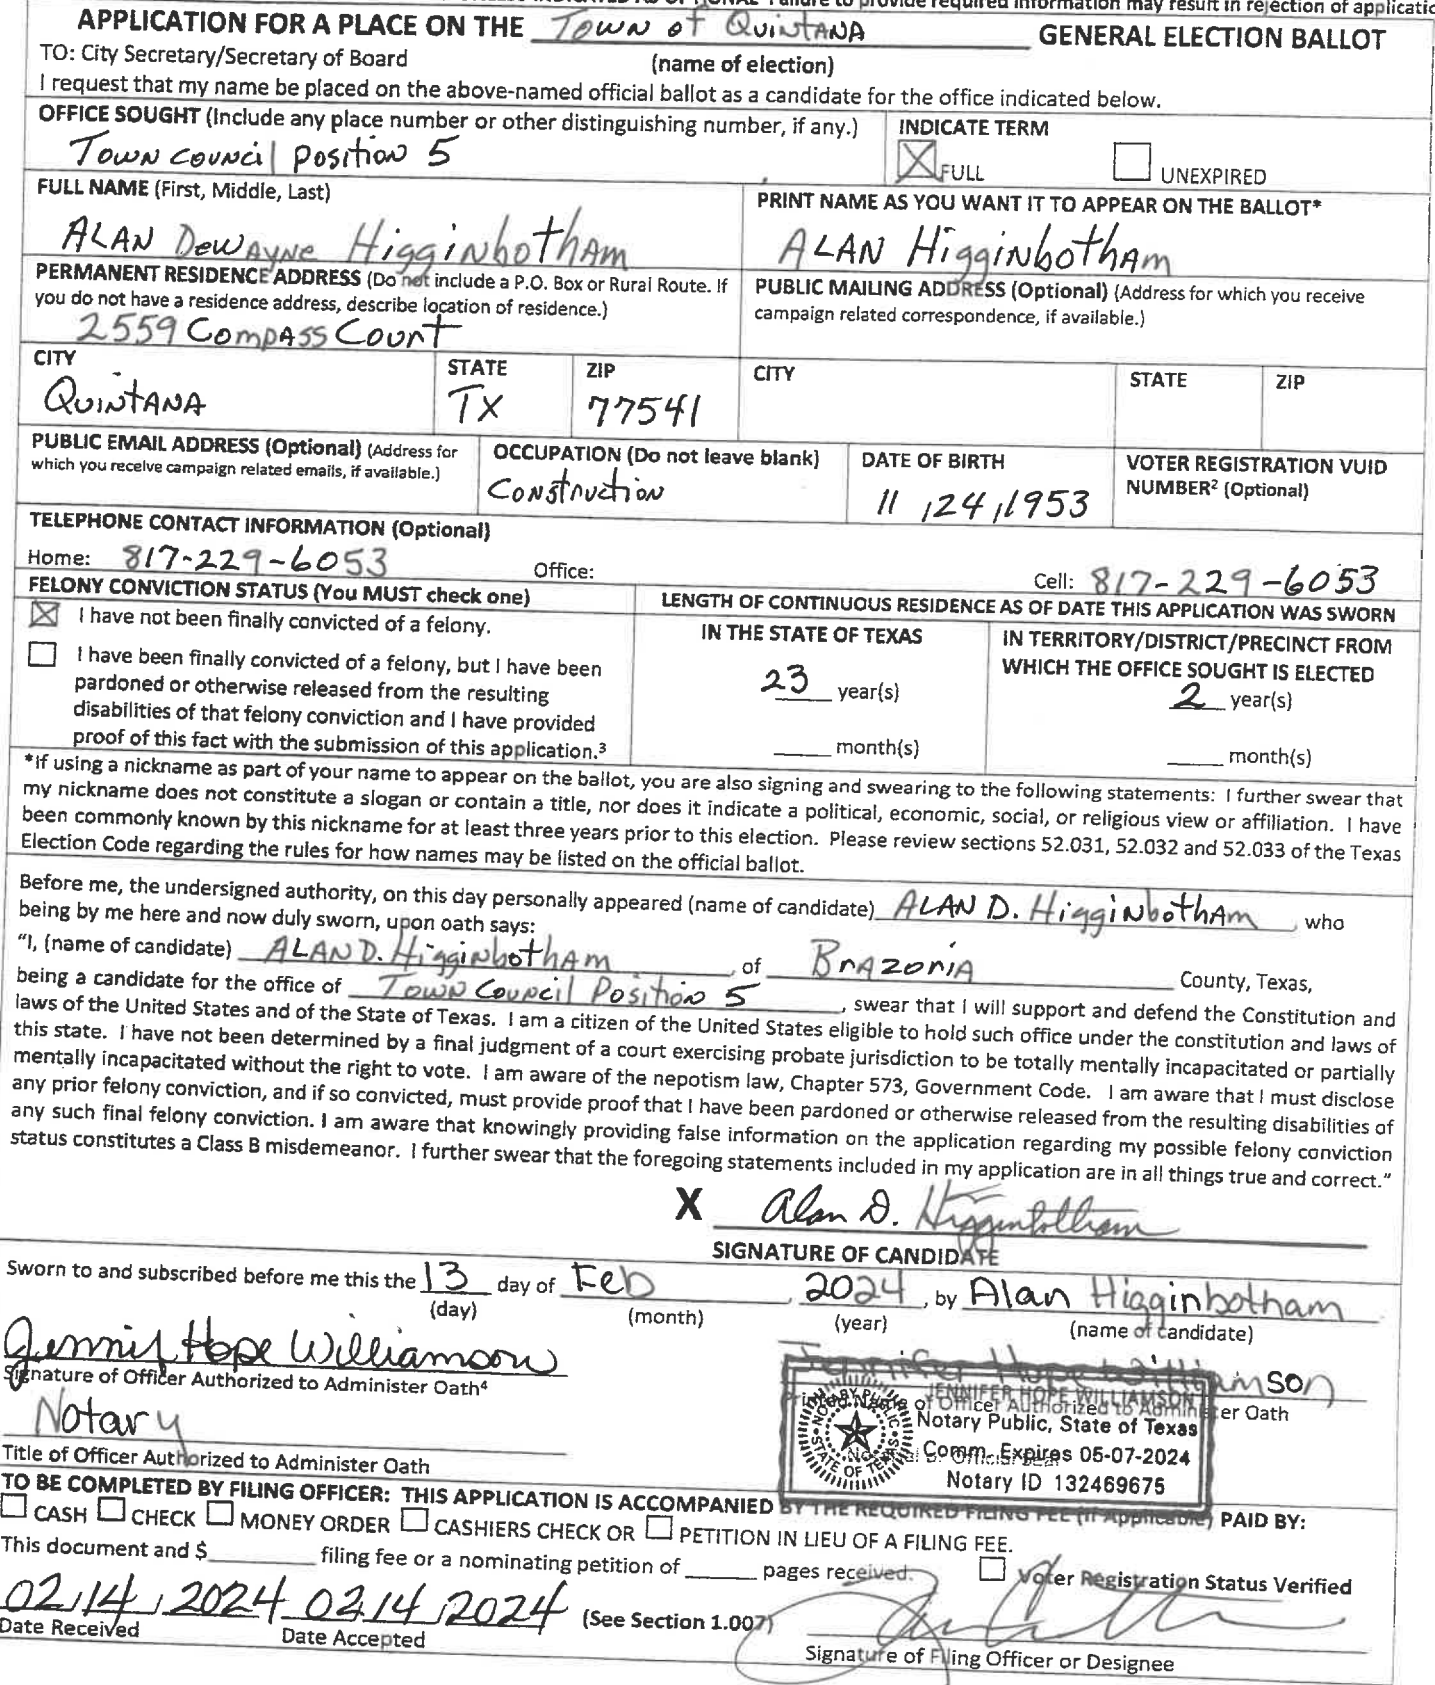 Failure to provide required information may result in rejection of applicatio
APPLICATION FOR A PLACE ON THE Town of Quintana GENERAL ELECTION BALLOT
TO: City Secretary/Secretary of Board (name of election)
I request that my name be placed on the above-named official ballot as a candidate for the office indicated below.
OFFICE SOUGHT (Include any place number or other distinguishing number, if any.) INDICATE TERM
Town Council Position 5 FULL UNEXPIRED
FULL NAME (First, Middle, Last) PRINT NAME AS YOU WANT IT TO APPEAR ON THE BALLOT*
ALAN DeWAYNE HigginbothAm ALAN HigginbothAm
PERMANENT RESIDENCE ADDRESS (Do not include a P.O. Box or Rural Route. If PUBLIC MAILING ADDRESS (Optional) (Address for which you receive
you do not have a residence address, describe location of residence.) campaign related correspondence, if available.)
2559 CompAss Court
CITY STATE ZIP CITY STATE ZIP
QuintANA TX 77541
PUBLIC EMAIL ADDRESS (Optional) (Address for OCCUPATION (Do not leave blank) DATE OF BIRTH VOTER REGISTRATION VUID
which you receive campaign related emails, if available.) Construction 11/24/1953 NUMBER² (Optional)
TELEPHONE CONTACT INFORMATION (Optional)
Home: 817-229-6053 Office: Cell: 817-229-6053
FELONY CONVICTION STATUS (You MUST check one) LENGTH OF CONTINUOUS RESIDENCE AS OF DATE THIS APPLICATION WAS SWORN
I have not been finally convicted of a felony. IN THE STATE OF TEXAS IN TERRITORY/DISTRICT/PRECINCT FROM
I have been finally convicted of a felony, but I have been WHICH THE OFFICE SOUGHT IS ELECTED
pardoned or otherwise released from the resulting 23 year(s) 2 year(s)
disabilities of that felony conviction and I have provided
proof of this fact with the submission of this application.³ month(s) month(s)
*If using a nickname as part of your name to appear on the ballot, you are also signing and swearing to the following statements: I further swear that
my nickname does not constitute a slogan or contain a title, nor does it indicate a political, economic, social, or religious view or affiliation. I have
been commonly known by this nickname for at least three years prior to this election. Please review sections 52.031, 52.032 and 52.033 of the Texas
Election Code regarding the rules for how names may be listed on the official ballot.
Before me, the undersigned authority, on this day personally appeared (name of candidate) ALAN D. HigginbothAm, who
being by me here and now duly sworn, upon oath says:
"I, (name of candidate) ALAN D. HigginbothAm, of BrAzoria County, Texas,
being a candidate for the office of Town Council Position 5, swear that I will support and defend the Constitution and
laws of the United States and of the State of Texas. I am a citizen of the United States eligible to hold such office under the constitution and laws of
this state. I have not been determined by a final judgment of a court exercising probate jurisdiction to be totally mentally incapacitated or partially
mentally incapacitated without the right to vote. I am aware of the nepotism law, Chapter 573, Government Code. I am aware that I must disclose
any prior felony conviction, and if so convicted, must provide proof that I have been pardoned or otherwise released from the resulting disabilities of
any such final felony conviction. I am aware that knowingly providing false information on the application regarding my possible felony conviction
status constitutes a Class B misdemeanor. I further swear that the foregoing statements included in my application are in all things true and correct."
X Alan D. Higginbotham
SIGNATURE OF CANDIDATE
Sworn to and subscribed before me this the 13 day of Feb, 2024, by Alan Higginbotham
(day) (month) (year) (name of candidate)
Jennif Hope Williamson Jennifer Hope Williamson
Signature of Officer Authorized to Administer Oath⁴ Printed Name of Officer Authorized to Administer Oath
JENNIFER HOPE WILLIAMSON
NOTARY PUBLIC STATE OF TEXAS
Notary Public, State of Texas
Comm. Expires 05-07-2024
Notary ID 132469675
Notary
Title of Officer Authorized to Administer Oath
TO BE COMPLETED BY FILING OFFICER: THIS APPLICATION IS ACCOMPANIED BY THE REQUIRED FILING FEE (If Applicable) PAID BY:
CASH CHECK MONEY ORDER CASHIERS CHECK OR PETITION IN LIEU OF A FILING FEE.
This document and $ filing fee or a nominating petition of pages received. Voter Registration Status Verified
02/14/2024 02/14/2024 (See Section 1.007)
Date Received Date Accepted Signature of Filing Officer or Designee